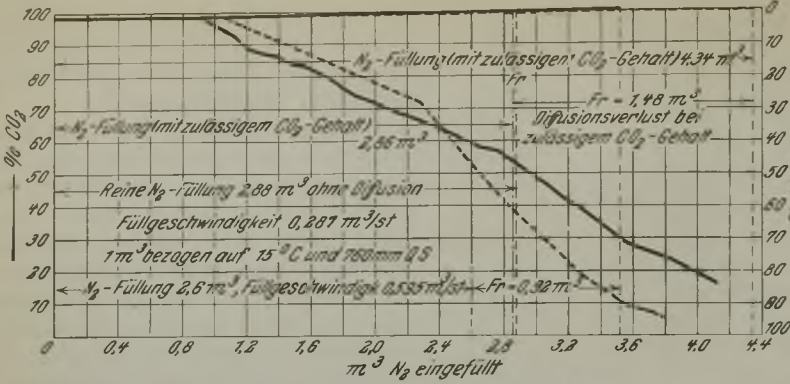 100
90
80
70
60
50
40
30
20
10
% CO2
N2-Füllung (mit zulässigem CO2-Gehalt) 4.34 m3
Fr
Fr = 1,48 m3
Difusionsverlust bei
zulässigem CO2-Gehalt
N2-Füllung (mit zulässigem CO2-Gehalt)
2,86 m3
Reine N2-Füllung 2,88 m3 ohne Difusion
Füllgeschwindigkeit 0,287 m3/st
1 m3 bezogen auf 15 °C und 760 mm QS
N2-Füllung 2,6 m3, Füllgeschwindigk 0,535 m3/st Fr = 0,92 m3
0
10
20
30
40
50
60
70
80
90
100
0 0,4 0,8 1,2 1,6 2,0 2,4 2,8 3,2 3,6 4.0 4,4
m3 N2 eingefüllt